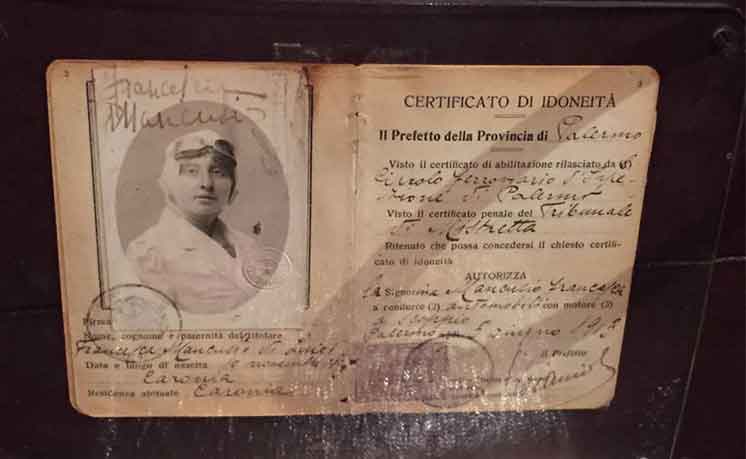 2
Francesca
Mancuso
Firma
Nome, cognome e paternità del titolare
Francesca Mancuso di
Data e luogo di nascita
Caronia
Residenza abituale Caronia
3
CERTIFICATO DI IDONEITÀ
Il Prefetto della Provincia di Palermo
Visto il certificato di abilitazione rilasciato da
Circolo ferroviario d'Ispe-
zione di Palermo
Visto il certificato penale del Tribunale
di Mistretta
Ritenuto che possa concedersi il chiesto certifi-
cato di idoneità
AUTORIZZA
la Signorina Mancuso Francesca
a condurre (2) automobili con motore (3)
a scoppio
Palermo giugno
Il Prefetto